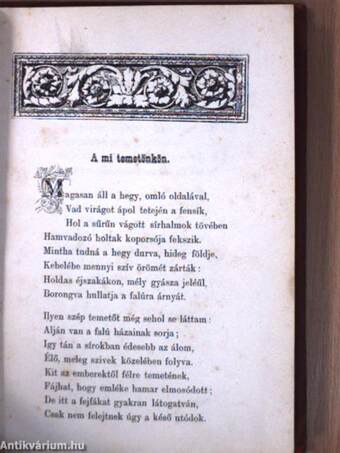 A mi temetőnkön.
Magasan áll a hegy, omló oldalával,
Vad virágot ápol tetején a fensík,
Hol a sűrűn vágott sírhalmok tövében
Hamvadozó holtak koporsója fekszik.
Mintha tudná a hegy durva, hideg földje,
Kebelébe mennyi szív örömét zárták:
Holdas éjszakákon, mély gyásza jeléül,
Borongva hullatja a falúra árnyát.
Ilyen szép temetőt még sehol se láttam:
Alján van a falú házainak sorja;
Igy tán a sírokban édesebb az álom,
Élő, meleg szivek közelében folyva.
Kit az emberektől félre temetének,
Fájhat, hogy emléke hamar elmosódott;
De itt a fejfákat gyakran látogatván,
Csak nem felejtnek úgy a késő utódok.
Antikvárium.hu